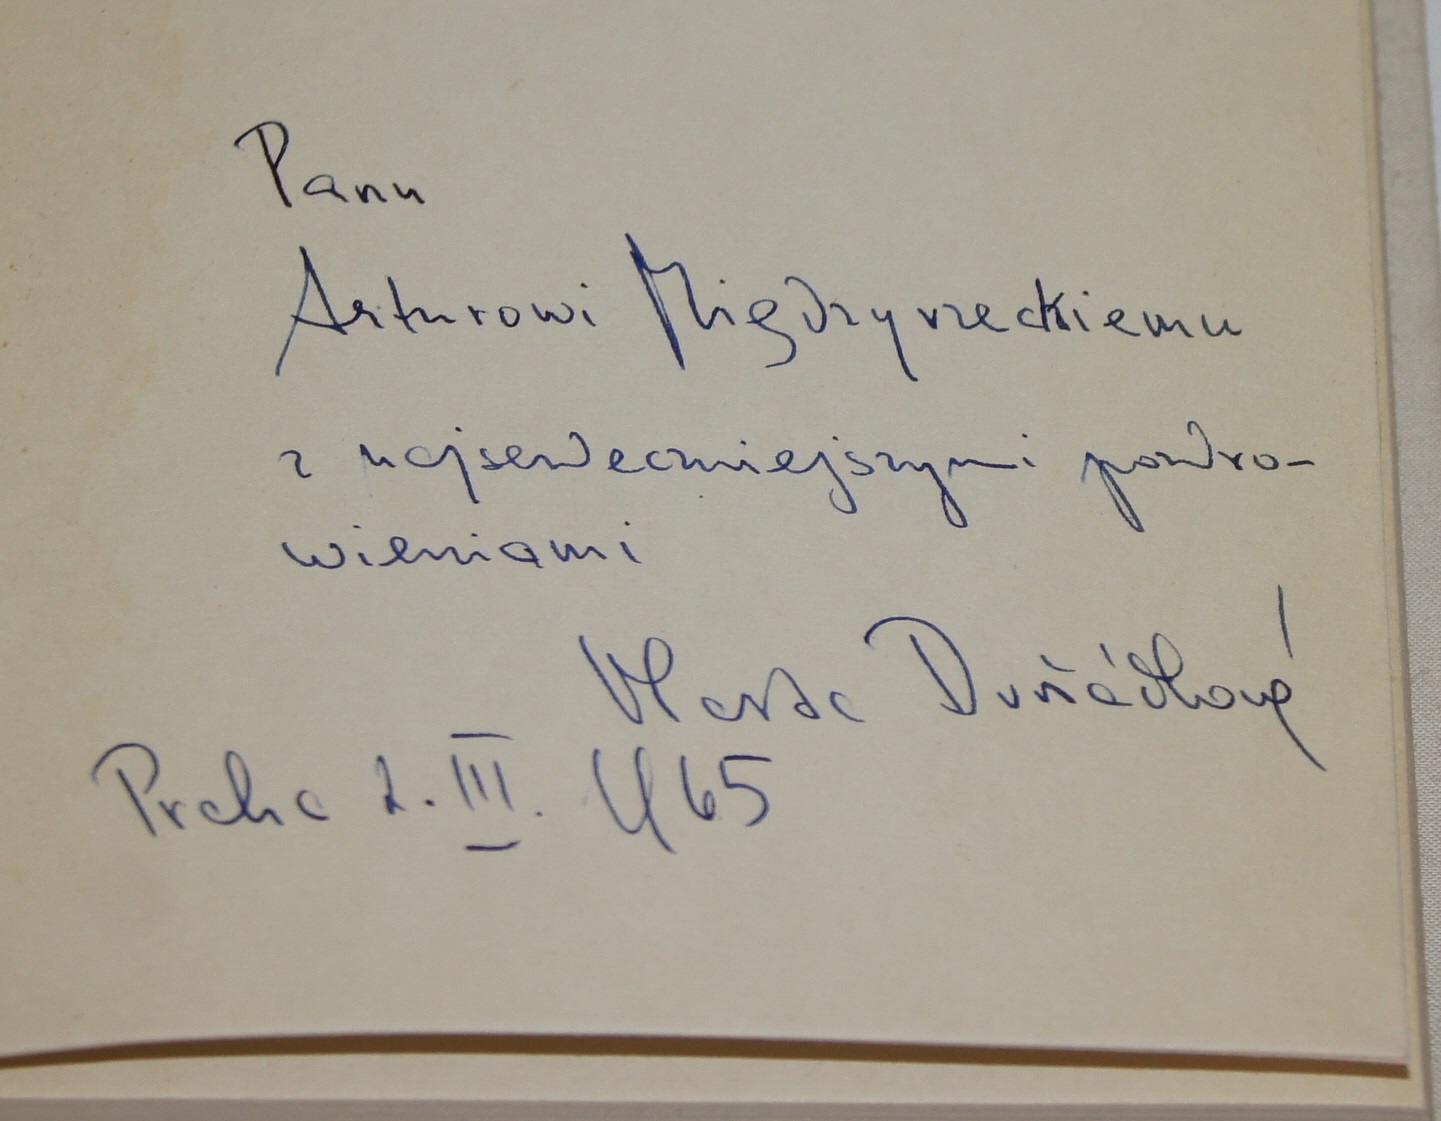 Panu
Arturowi Międzyrzeckiemu
z najserdeczniejszymi pozdro-
wieniami
Vlasta Dvořáčková
Praha 2. III. 1965